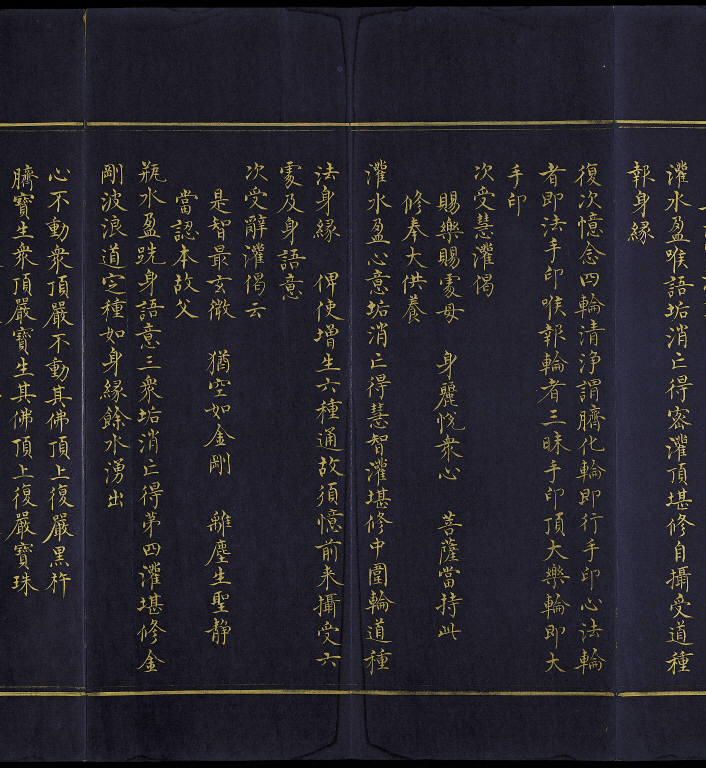 灌水盈喉語垢消亡得密灌頂堪修自攝受道種
報身緣
復次憶念四輪清淨謂臍化輪即行手印心法輪
者即法手印喉報輪者三昧手印頂大樂輪即大
手印
次受慧灌偈
賜樂賜處母　身麗悅衆心　菩薩當持此
修奉大供養
灌水盈心意垢消亡得慧智灌堪修中圍輪道種
法身緣　俾使增生六種通故須憶前来攝受六
處及身語意
次受辭灌偈云
是智最玄微　猶空如金剛　離塵生聖静
當認本故父
瓶水盈跣身語意三衆垢消亡得第四灌堪修金
剛波浪道定種如身緣餘水湧出
心不動衆頂嚴不動其佛頂上復嚴黑杵
臍寶生衆頂嚴寶生其佛頂上復嚴寶珠